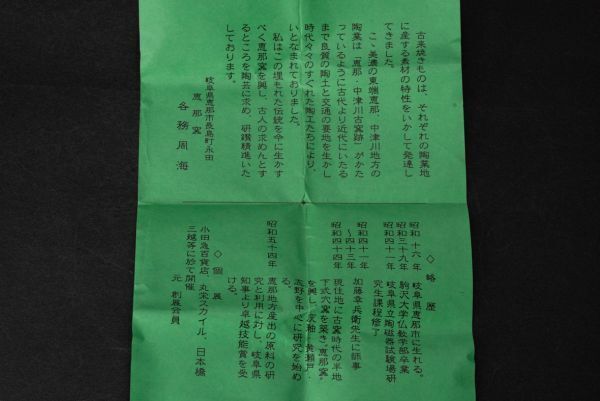 古来焼きものは、それぞれの陶業地
に産する素材の特性をいかして発達し
てきました。
こゝ美濃の東端恵那、中津川地方の
陶業は「恵那・中津川古窯跡」がかた
っているように古代より近代にいたる
まで良質の陶土と交通の要地を生かし
時代々々のすぐれた陶工たちにより、
いとなまれておりました。
私はこの埋もれた伝統を今に生かす
べく恵那窯を興し、古人の求めんとす
るところを陶芸に求め、研鑽精進いた
しております。
岐阜県恵那市長島町永田
恵那窯
各務周海
◇略歴
昭和十六年 岐阜県恵那市に生れる。
昭和三十九年 駒沢大学仏教学部卒業
昭和四十一年 岐阜県立陶磁器試験場研
究生課程修了
昭和四十一年
〜四十三年 加藤幸兵衛先生に師事
昭和四十四年 現住地に古窯時代の半地
下式穴窯を築き"恵那窯"
を興し、灰釉・黄瀬戸・
志野を中心に研究を始め
る。
昭和五十四年 恵那地方産出の原料の研
究と利用に対し、岐阜県
知事より卓越技能賞を受
ける。
◇個展
小田急百貨店、丸栄スカイル、日本橋
三越等に於て開催
元 創展会員